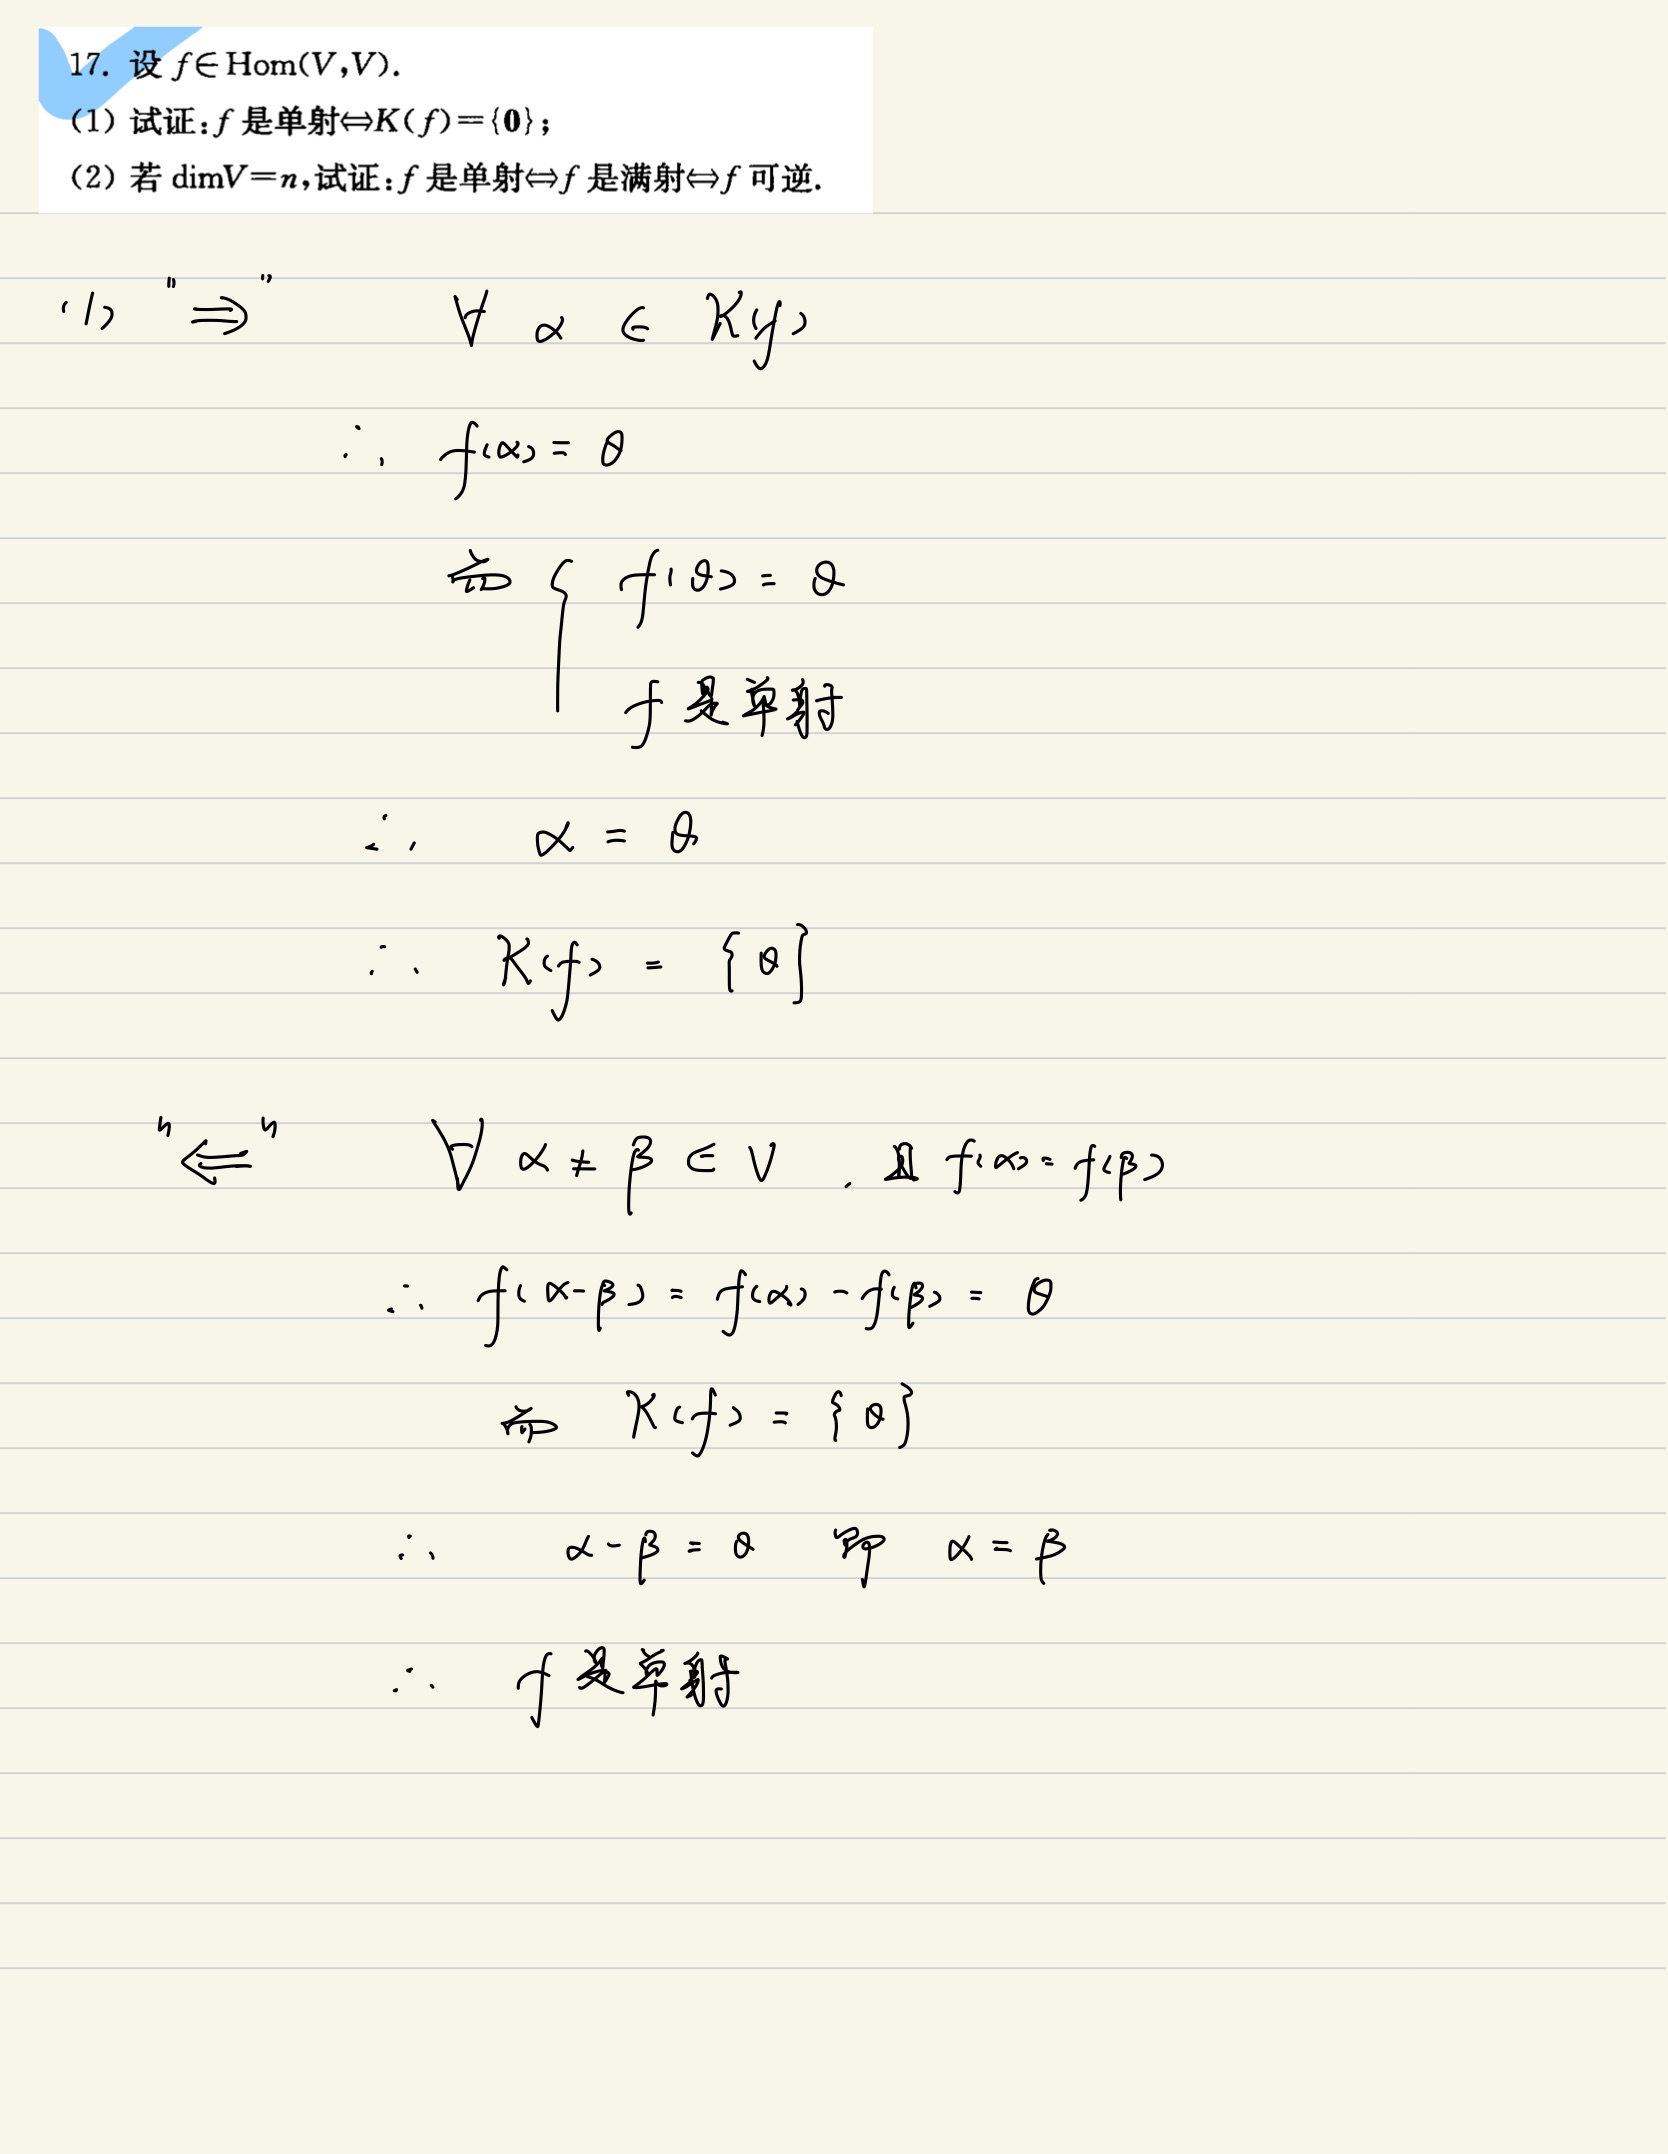 17. 设 f∈Hom(V,V).
(1) 试证:f 是单射⇔K(f)={0};
(2) 若 dimV=n,试证:f 是单射⇔f 是满射⇔f 可逆.
(1) "⇒" ∀ α ∈ K(f)
∴ f(α) = θ
而 { f(θ) = θ
f 是单射
∴ α = θ
∴ K(f) = {θ}
"⇐" ∀ α ≠ β ∈ V . 且 f(α) = f(β)
∴ f(α-β) = f(α) - f(β) = θ
而 K(f) = {θ}
∴ α-β = θ 即 α = β
∴ f 是单射